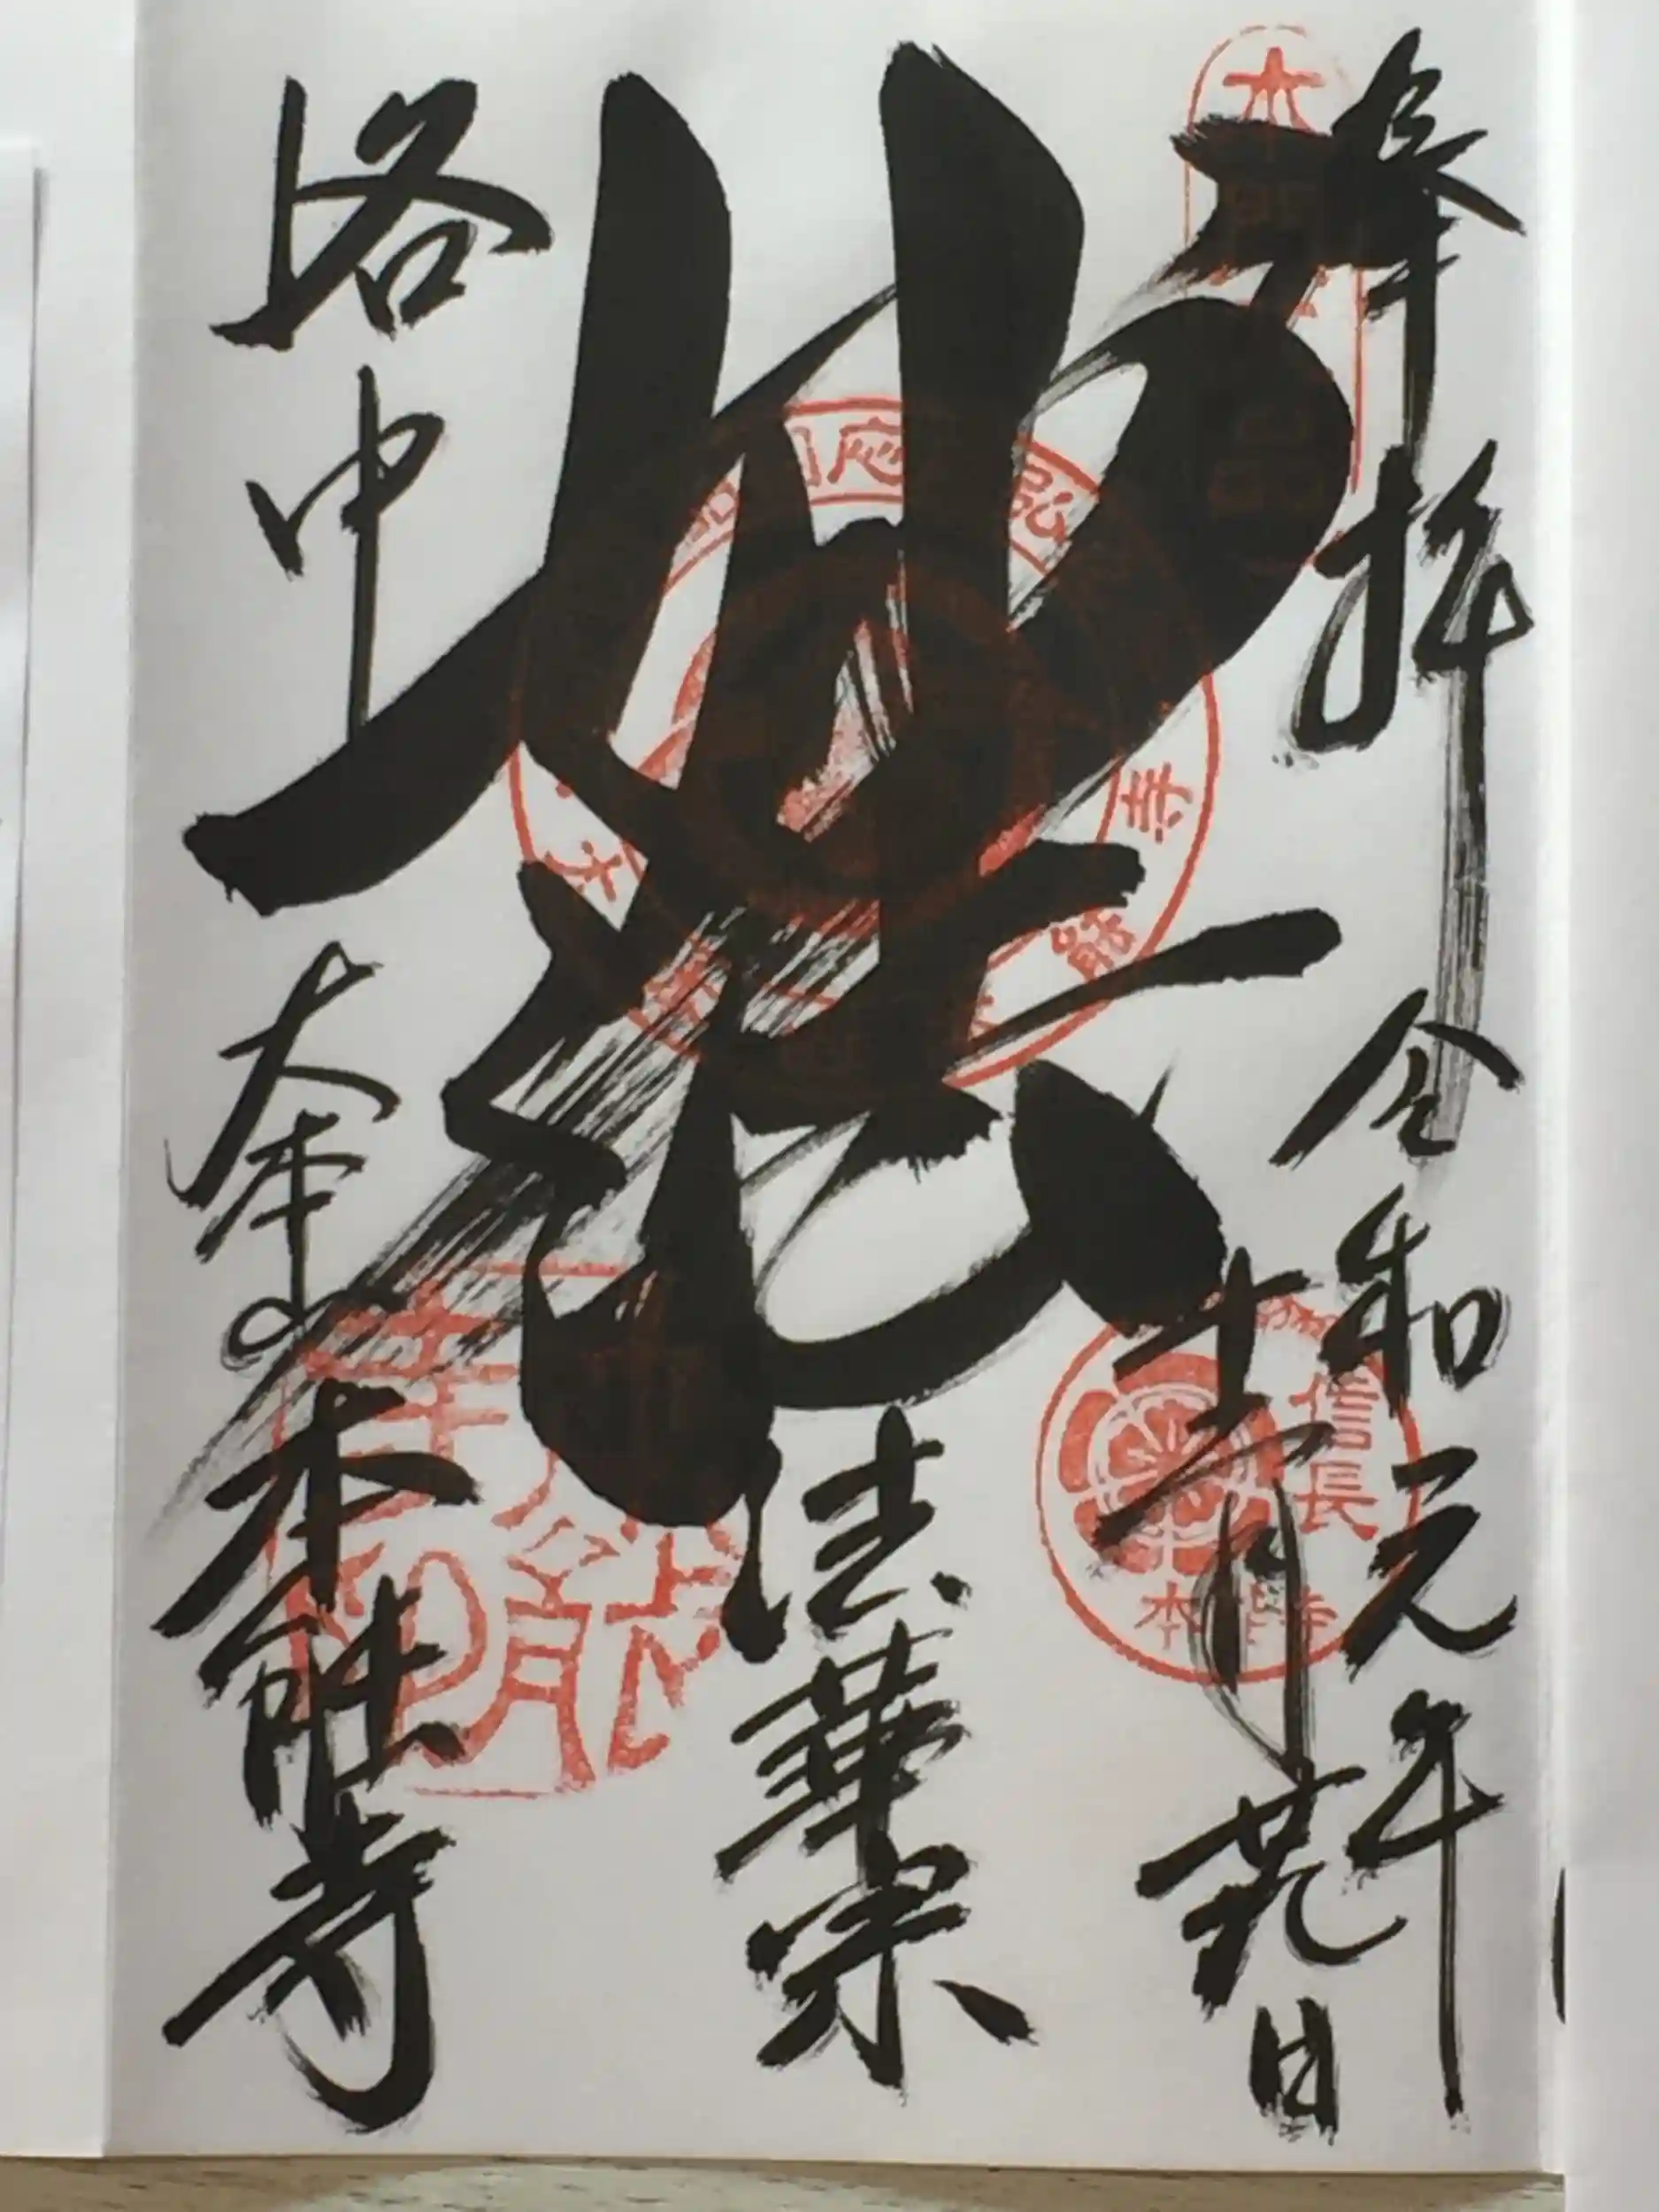 奉拝
令和元年
十一月
日
妙法
法華宗
洛中
大本山
本能寺
信長
本能寺